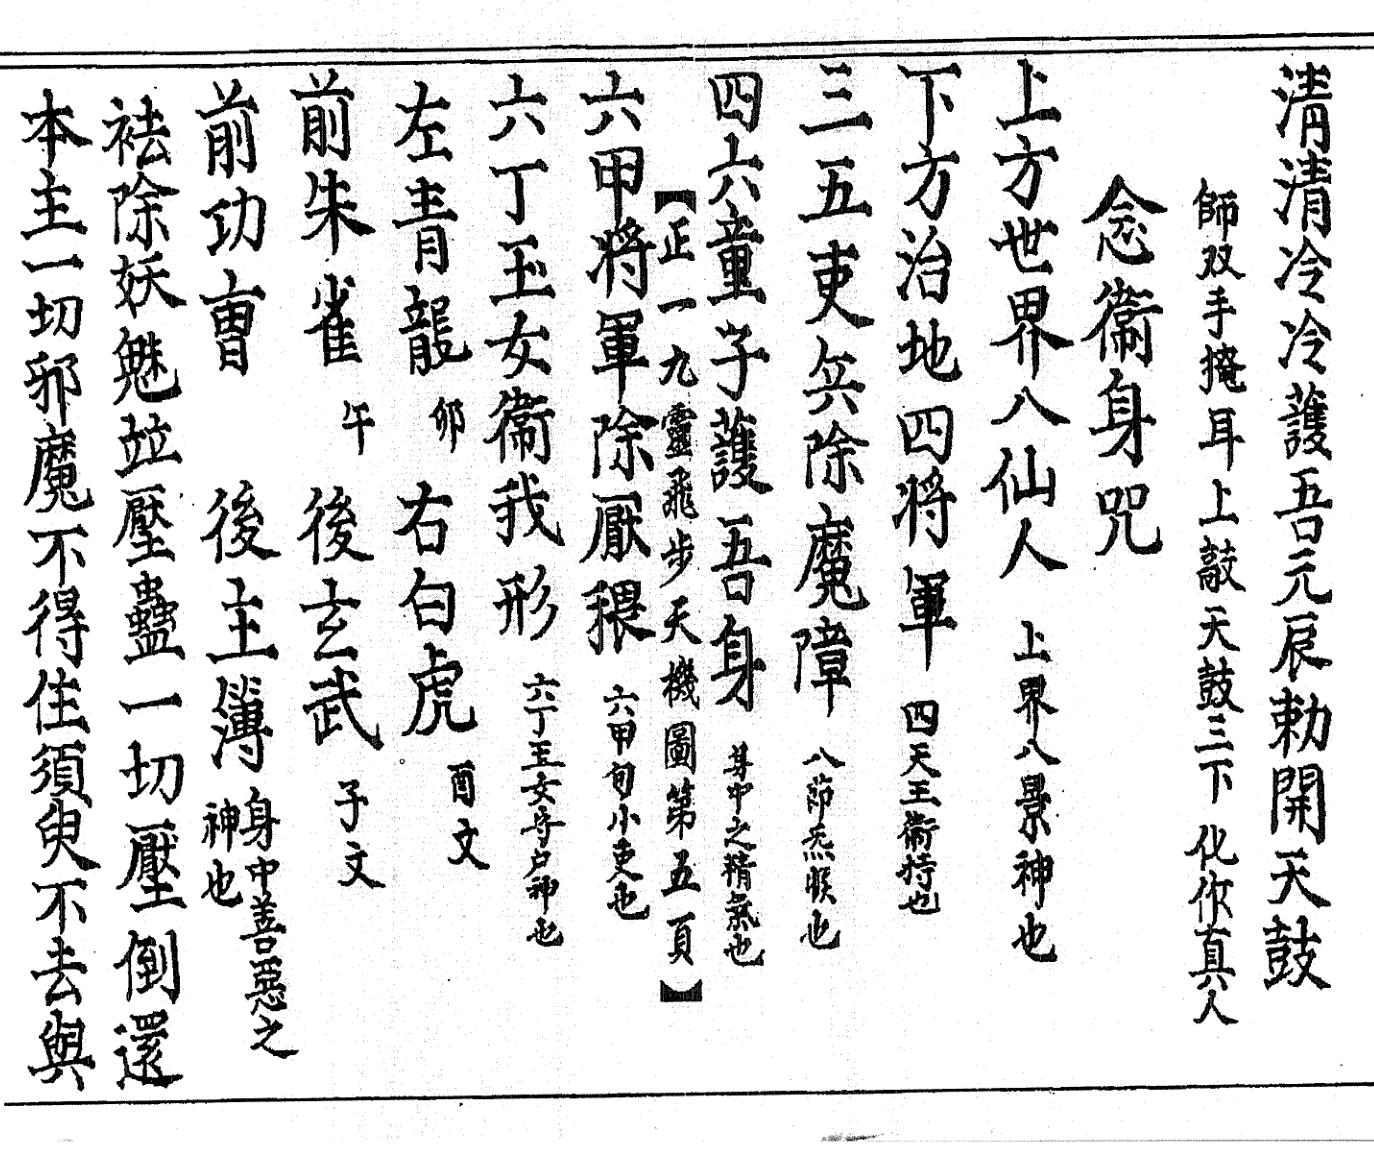 清清冷冷護吾元辰勅開天鼓
師双手掩耳上敲天鼓三下 化作真人
念衞身咒
上方世界八仙人 上界八景神也
下方治地四將軍 四天王衞持也
三五吏兵除魔障 八節炁候也
四六童子護吾身 身中之精氣也
【正一九靈飛步天機圖第五頁】
六甲將軍除厭穢 六甲旬小吏也
六丁玉女衞我形 六丁玉女守户神也
左青龍 卯 右白虎 酉文
前朱雀 午 後玄武 子文
前功曹 後主簿 身中善惡之神也
祛除妖魁並壓蠱一切壓倒還
本主一切邪魔不得住須臾不去與